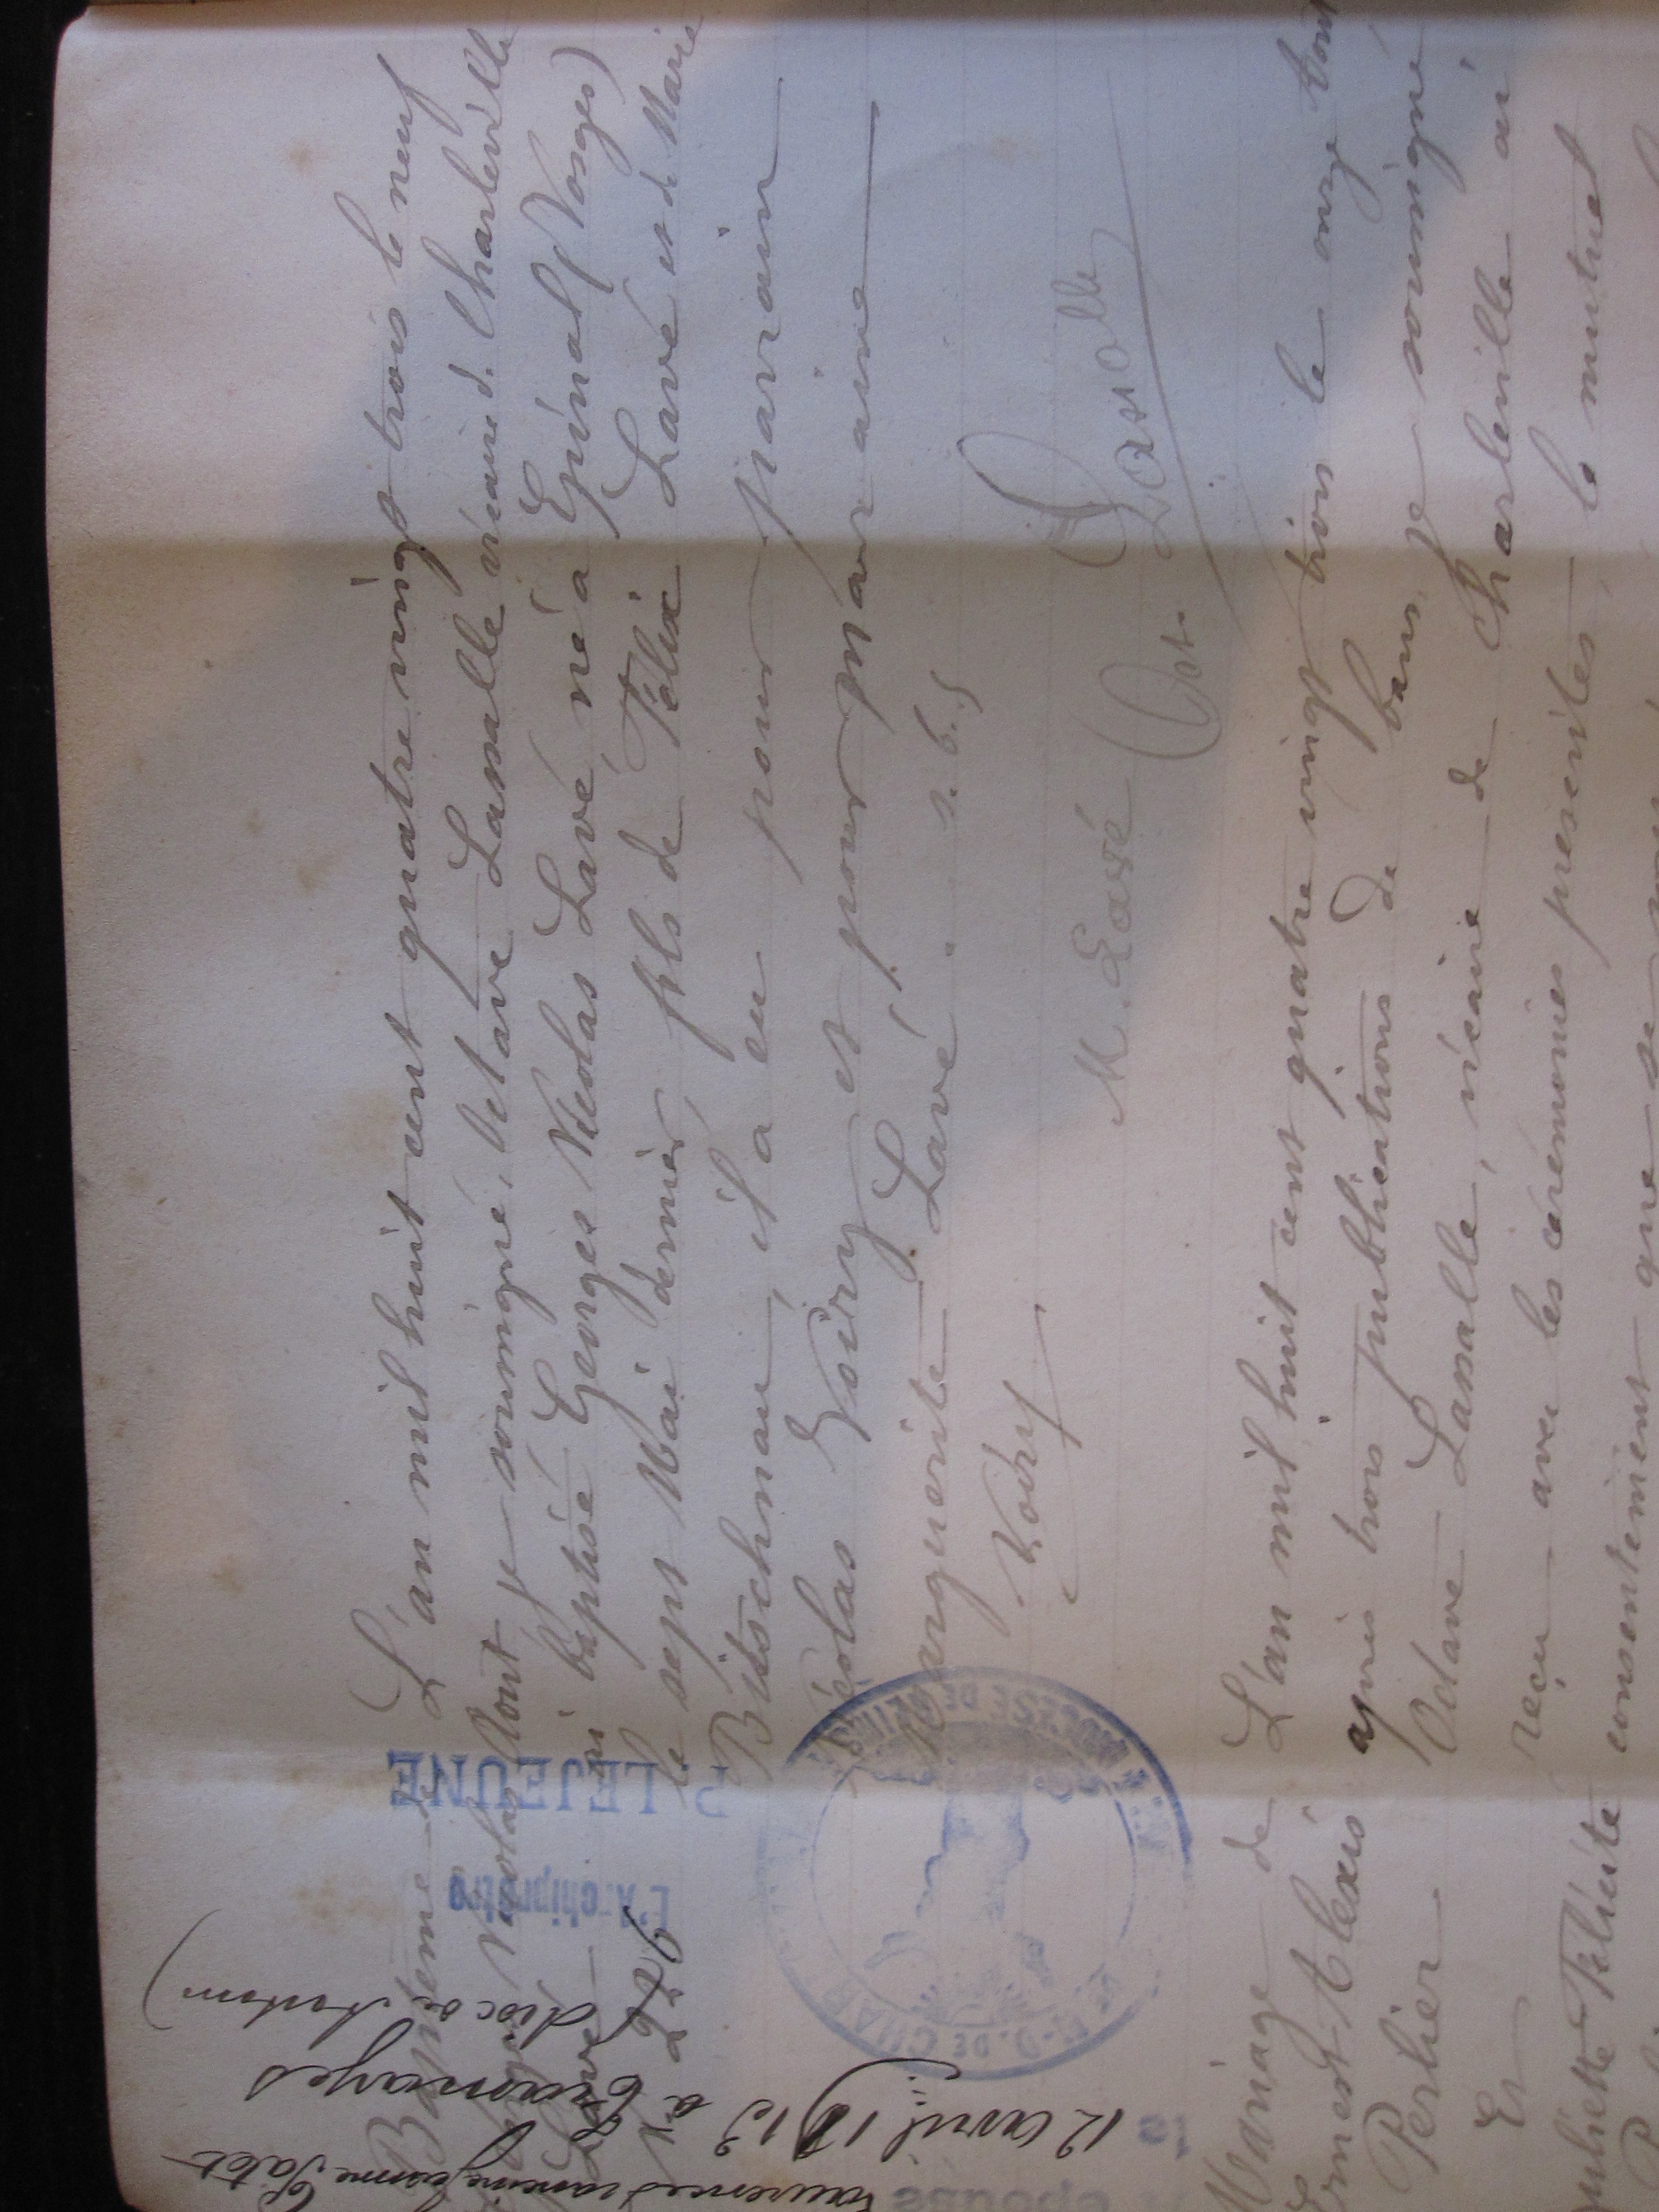 Baptême de
Georges Nicolas
Lavé
N° 229
L'an mil huit cent quatre vingt trois le neuf
Août je soussigné, Octave Lasalle vicaire d. Charleville
ai baptisé Georges Nicolas Lavé, né a Epinal (Vosges)
le sept Mai dernier, fils de Félix Lavé et de Marie
Bütschmau, il a eu pour parrain
Nicolas Voiry et pour marraine
Marguerite Lavé. . s. b. s
Voiry
M. Lavé
Oct. Lasalle
L'Archiprêtre
P. LEJEUNE
N-D. DE CHAR
DIOCÈSE DE REIMS
épouse
12 avril 1913
à Eramayes
(dioc de
Mariage de
Ernest Alexis
Perlier
Et
Juliette
L'an mil huit cent quatre vingt trois le onze
après trois publications de bans, je soussigné
Octave Lasalle, vicaire de Charleville ai
reçu avec les cérémonies presentes, le mutuel
consentement que se